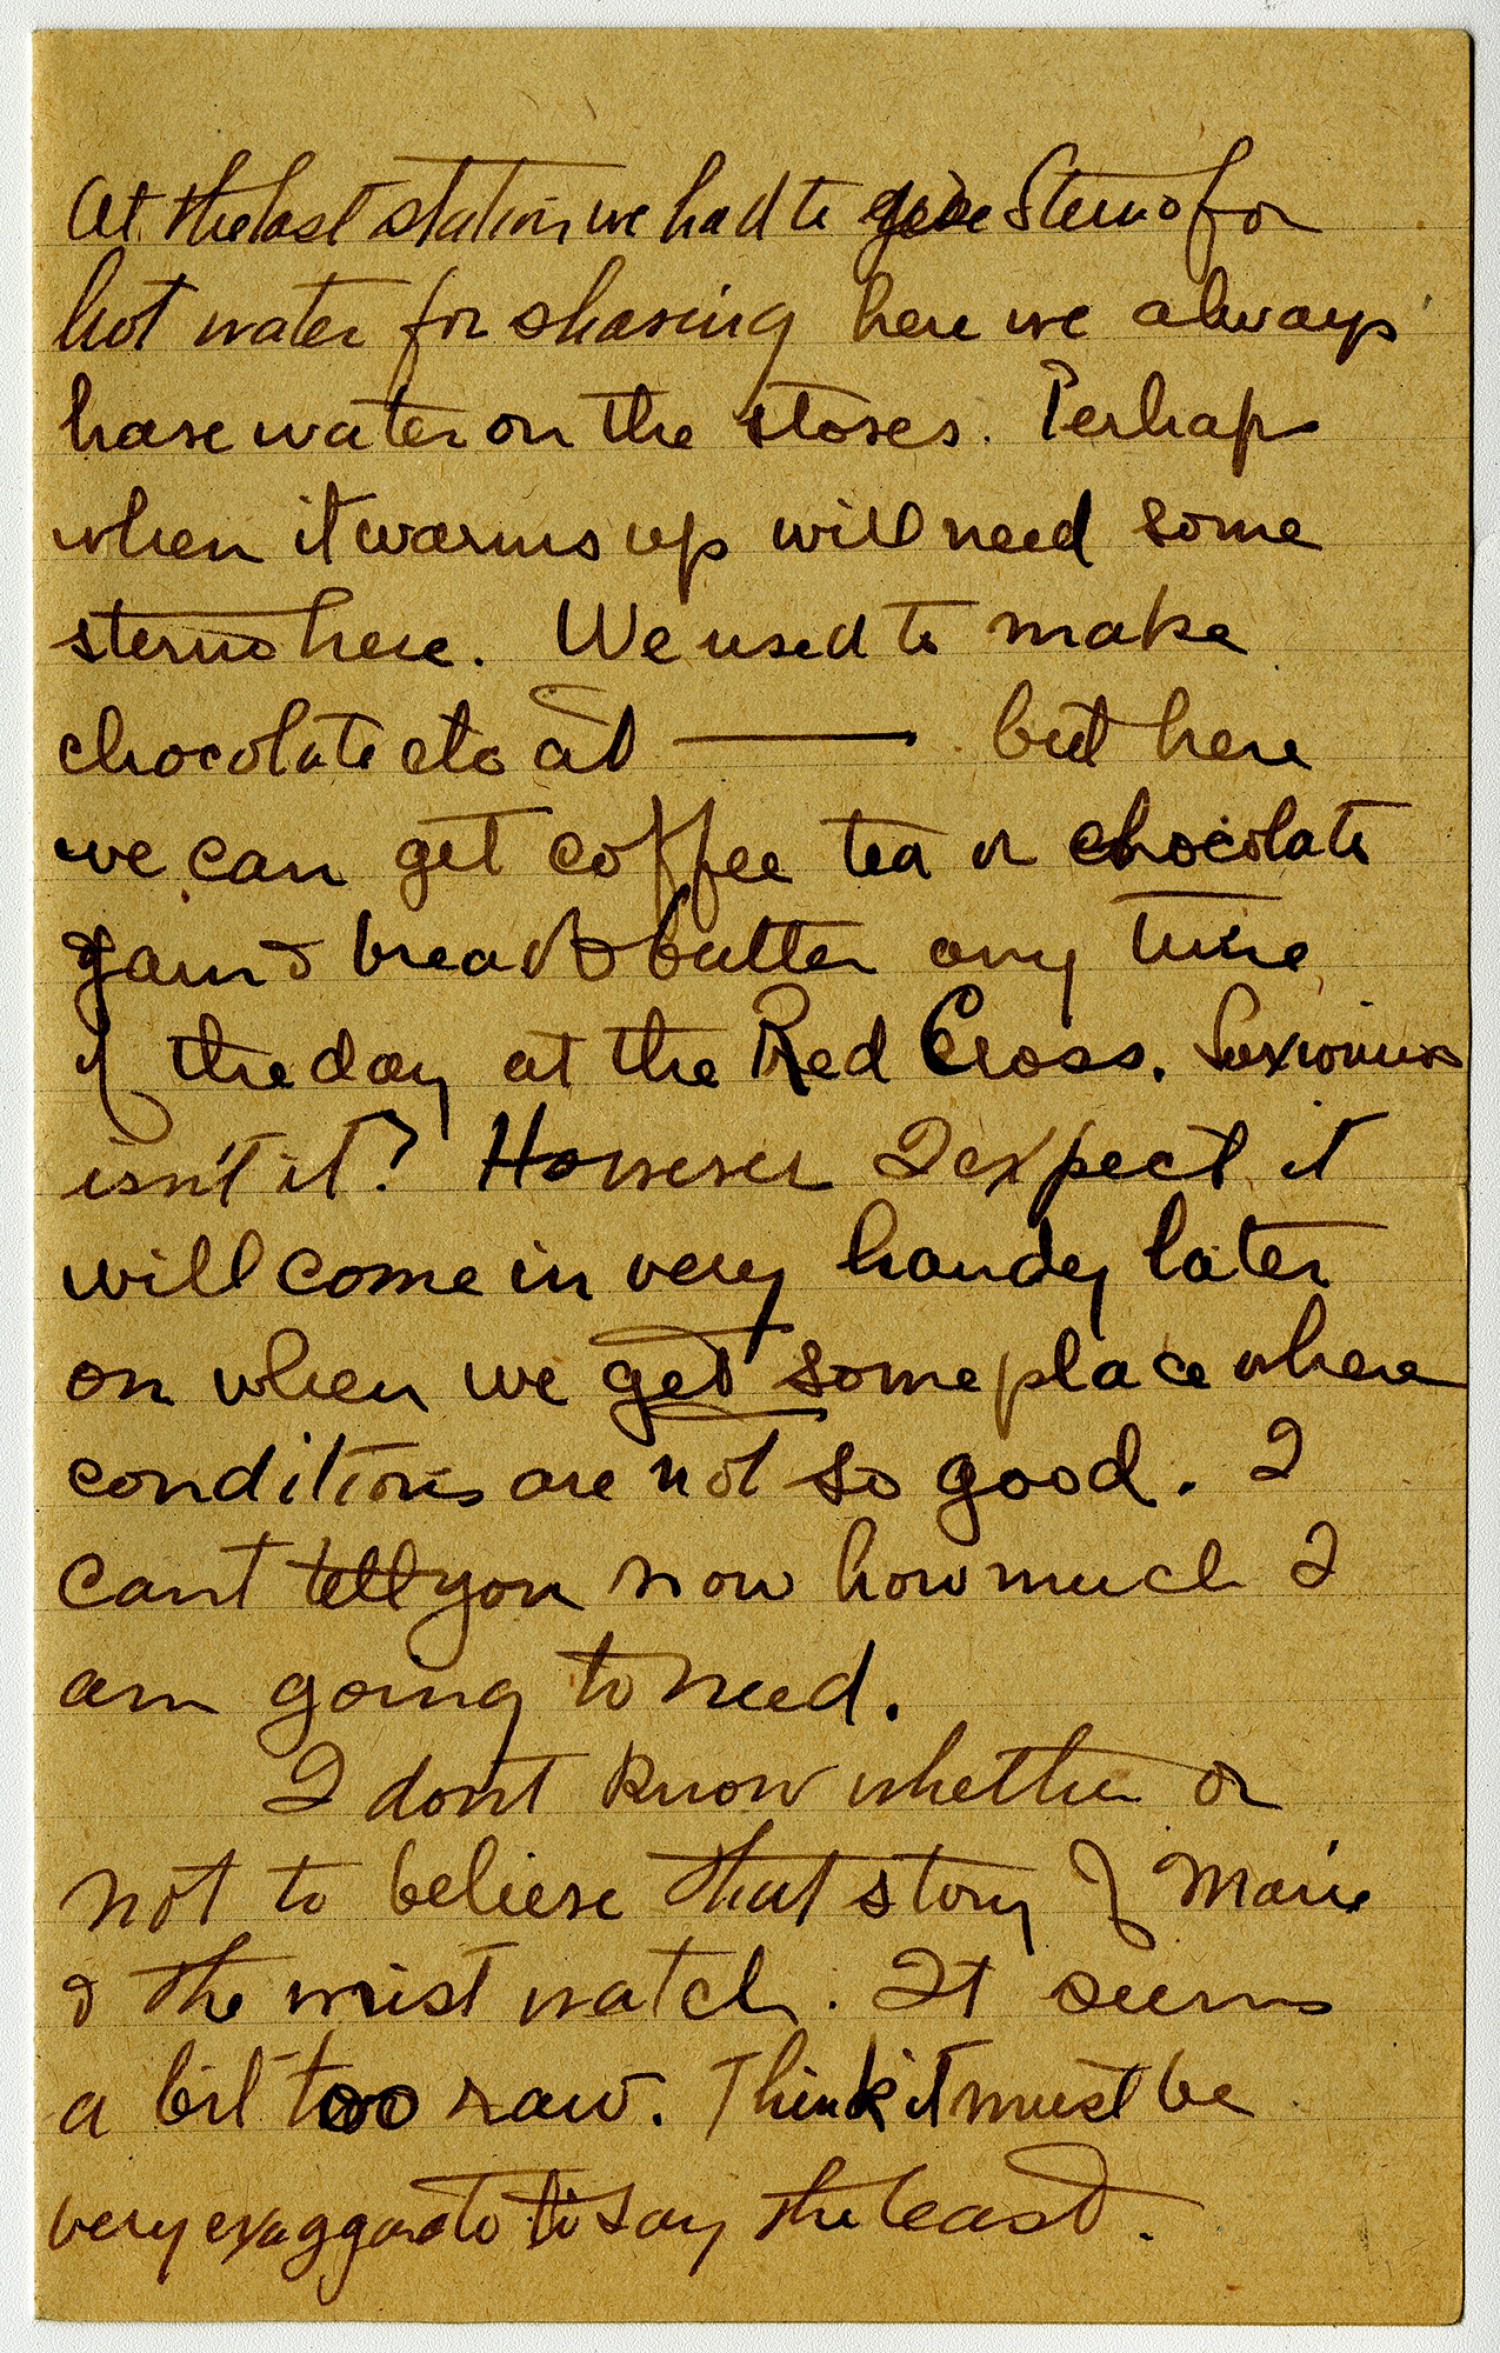 At the last station we had to give Sterno for
hot water for shaving here we always
have water on the stoves. Perhaps
when it warms up will need some
sterno here. We used to make
chocolate etc at ——— but here
we can get coffee tea or chocolate
jam & bread & butter any time
of the day at the Red Cross. Luxurious
isn't it? However I expect it
will come in very handy later
on when we get some place where
conditions are not so good. I
cant tell you now how much I
am going to need.
I dont know whether or
not to believe that story of Marie
& the wrist watch. It seems
a bit too raw. Think it must be
very to say the least.